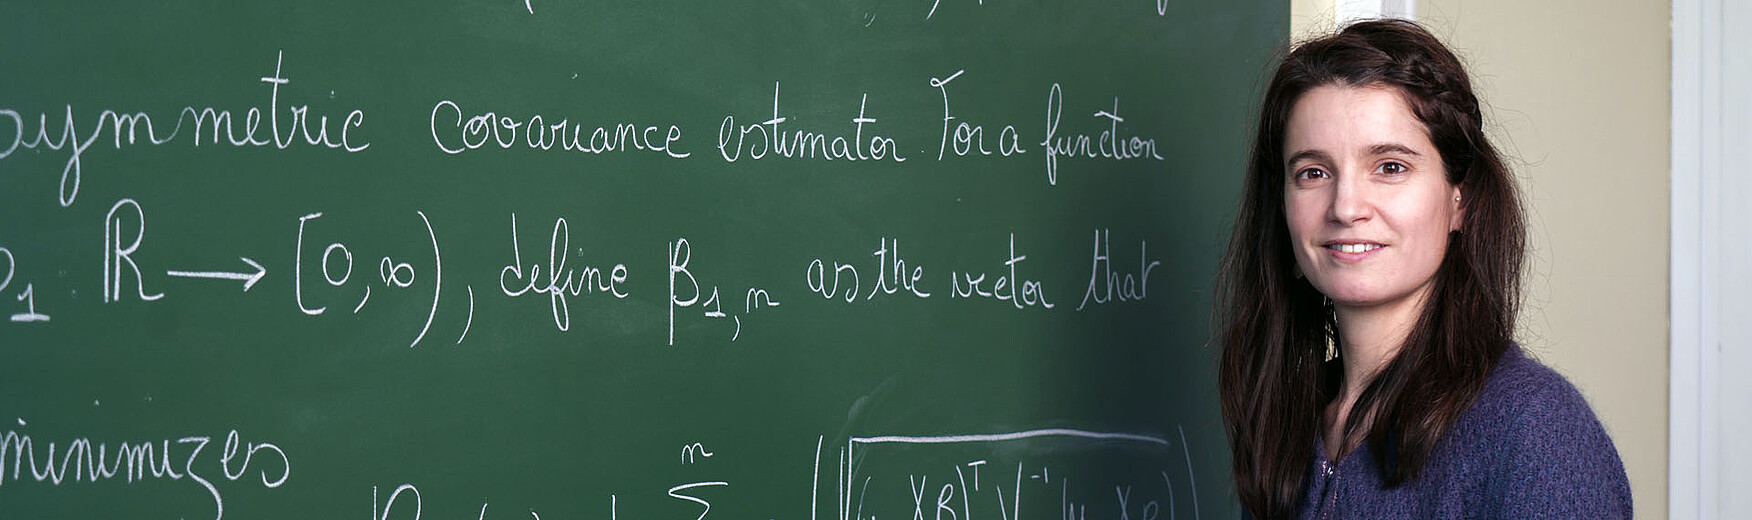 symmetric covariance estimator. For a function
ρ₁ : R → [0, ∞), define β₁,ₙ as the vector that
minimizes
n
∑ (y XB)ᵀ V⁻¹ (y XB)